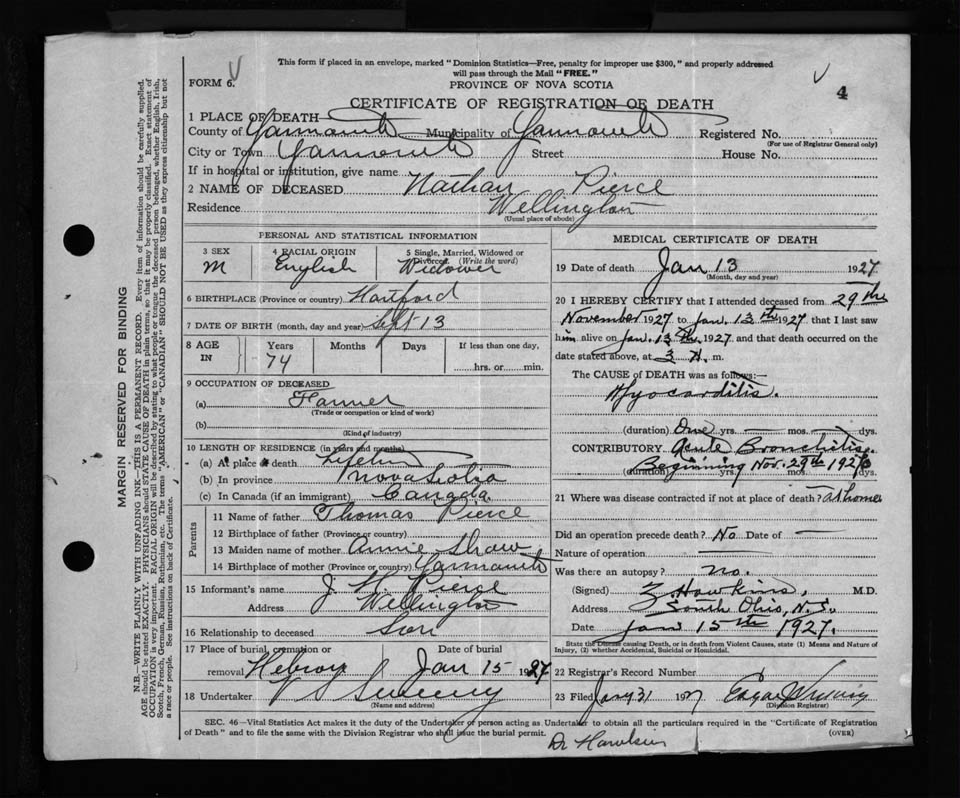 This form if placed in an envelope, marked "Dominion Statistics—Free, penalty for improper use $300," and properly addressed
will pass through the Mail "FREE."
FORM 6.
PROVINCE OF NOVA SCOTIA
4
CERTIFICATE OF REGISTRATION OF DEATH
1 PLACE OF DEATH
County of Yarmouth Municipality of Yarmouth Registered No.
(For use of Registrar General only)
City or Town Yarmouth Street House No.
If in hospital or institution, give name
2 NAME OF DECEASED Nathan Pierce
Residence Wellington
(Usual place of abode)
PERSONAL AND STATISTICAL INFORMATION
3 SEX 4 RACIAL ORIGIN 5 Single, Married, Widowed or
Divorced (Write the word)
M English Widower
6 BIRTHPLACE (Province or country) Hartford
7 DATE OF BIRTH (month, day and year) Sept 13
8 AGE IN Years Months Days If less than one day,
74 hrs. or min.
9 OCCUPATION OF DECEASED
(a) Farmer
(Trade or occupation or kind of work)
(b)
(Kind of industry)
10 LENGTH OF RESIDENCE (in years and months)
(a) At place of death Lifetime
(b) In province Nova Scotia
(c) In Canada (if an immigrant) Canada
Parents
11 Name of father Thomas Pierce
12 Birthplace of father (Province or country)
13 Maiden name of mother Annie Shaw
14 Birthplace of mother (Province or country) Yarmouth
15 Informant's name J. H. Pierce
Address Wellington
16 Relationship to deceased Son
17 Place of burial, cremation or Date of burial
removal Hebron Jan 15 1927
18 Undertaker V S Sweeny
(Name and address)
MEDICAL CERTIFICATE OF DEATH
19 Date of death Jan 13 1927
(Month, day and year)
20 I HEREBY CERTIFY that I attended deceased from 29th
November 1927 to Jan. 13th 1927 that I last saw
him alive on Jan. 13th, 1927 and that death occurred on
date stated above, at 3 A. m.
The CAUSE of DEATH was as follows:—
Myocarditis.
(duration) One yrs. — mos. — dys.
CONTRIBUTORY Acute Bronchitis.
Beginning Nov. 29th 1926
(duration) yrs. mos. dys.
21 Where was disease contracted if not at place of death? At home
Did an operation precede death? No Date of —
Nature of operation —
Was there an autopsy? no.
(Signed) Z Hawkins, M.D.
Address South Ohio, N.S.
Date Jan 15th 1927.
State the Disease causing Death, or in death from Violent Causes, state (1) Means and Nature of
Injury, (2) whether Accidental, Suicidal or Homicidal.
22 Registrar's Record Number
23 Filed Jany 31 1927 Edgar
(Division Registrar)
SEC. 46—Vital Statistics Act makes it the duty of the Undertaker or person acting as Undertaker to obtain all the particulars required in the "Certificate of Registration
of Death" and to file the same with the Division Registrar who shall issue the burial permit.
(OVER)
Dr Hawkins
MARGIN RESERVED FOR BINDING
N.B.—WRITE PLAINLY WITH UNFADING INK—THIS IS A PERMANENT RECORD. Every item of information should be carefully supplied.
AGE should be stated EXACTLY. PHYSICIANS should STATE CAUSE OF DEATH in plain terms, so that it may be properly classified. Exact statement of
OCCUPATION is very important. RACIAL ORIGIN will be described by stating to what people or tongue the deceased person belonged, whether English, Irish,
Scotch, French, German, Russian, Ruthenian, etc. The terms "AMERICAN" or "CANADIAN" SHOULD NOT BE USED as they express citizenship but not
a race or people. See instructions on back of Certificate.